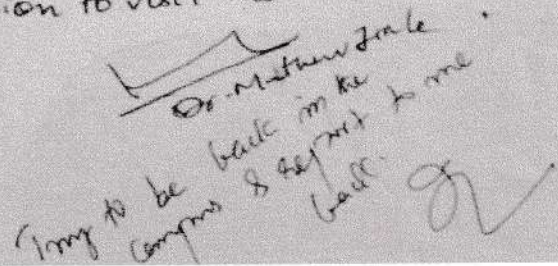 ion to visit
Dr. Mathew
Try to be back in the
campus & report to me
back.